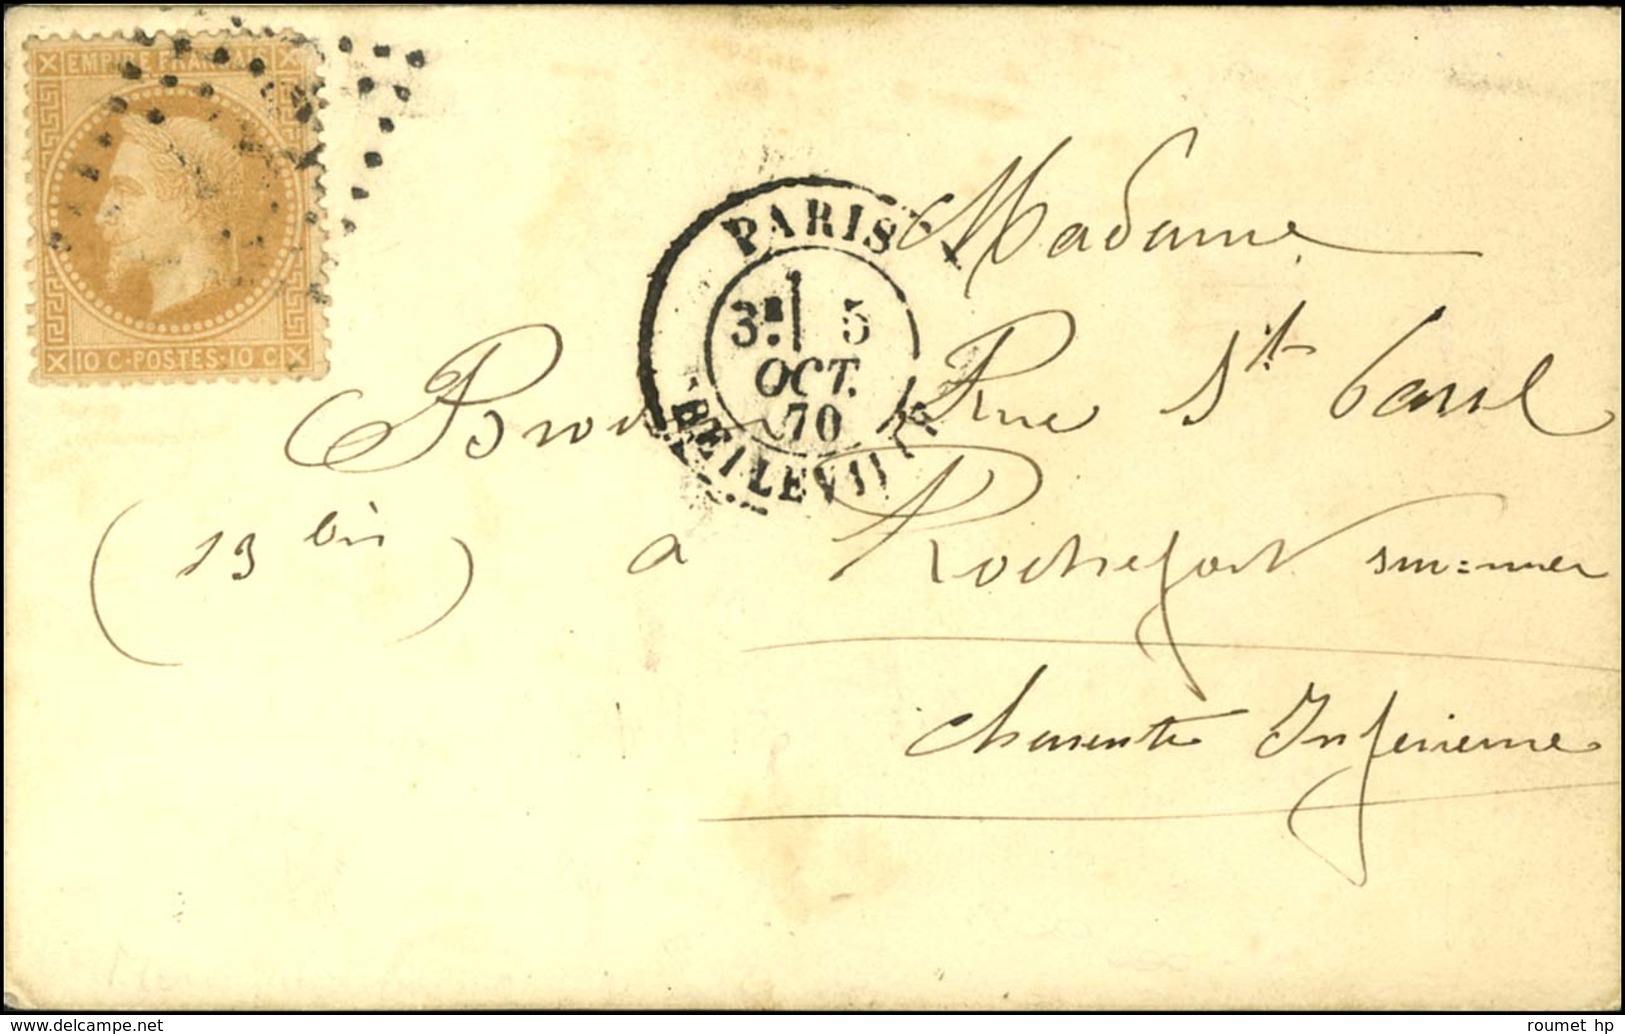 EMPIRE FRANÇAIS
10 C · POSTES · 10 C
PARIS
3E 5
OCT.
70
BELLEVILLE
Madame
Rue St
(13 bis) a Rochefort sur=mer
Charente Inferieure
roumet hp
www.delcampe.net